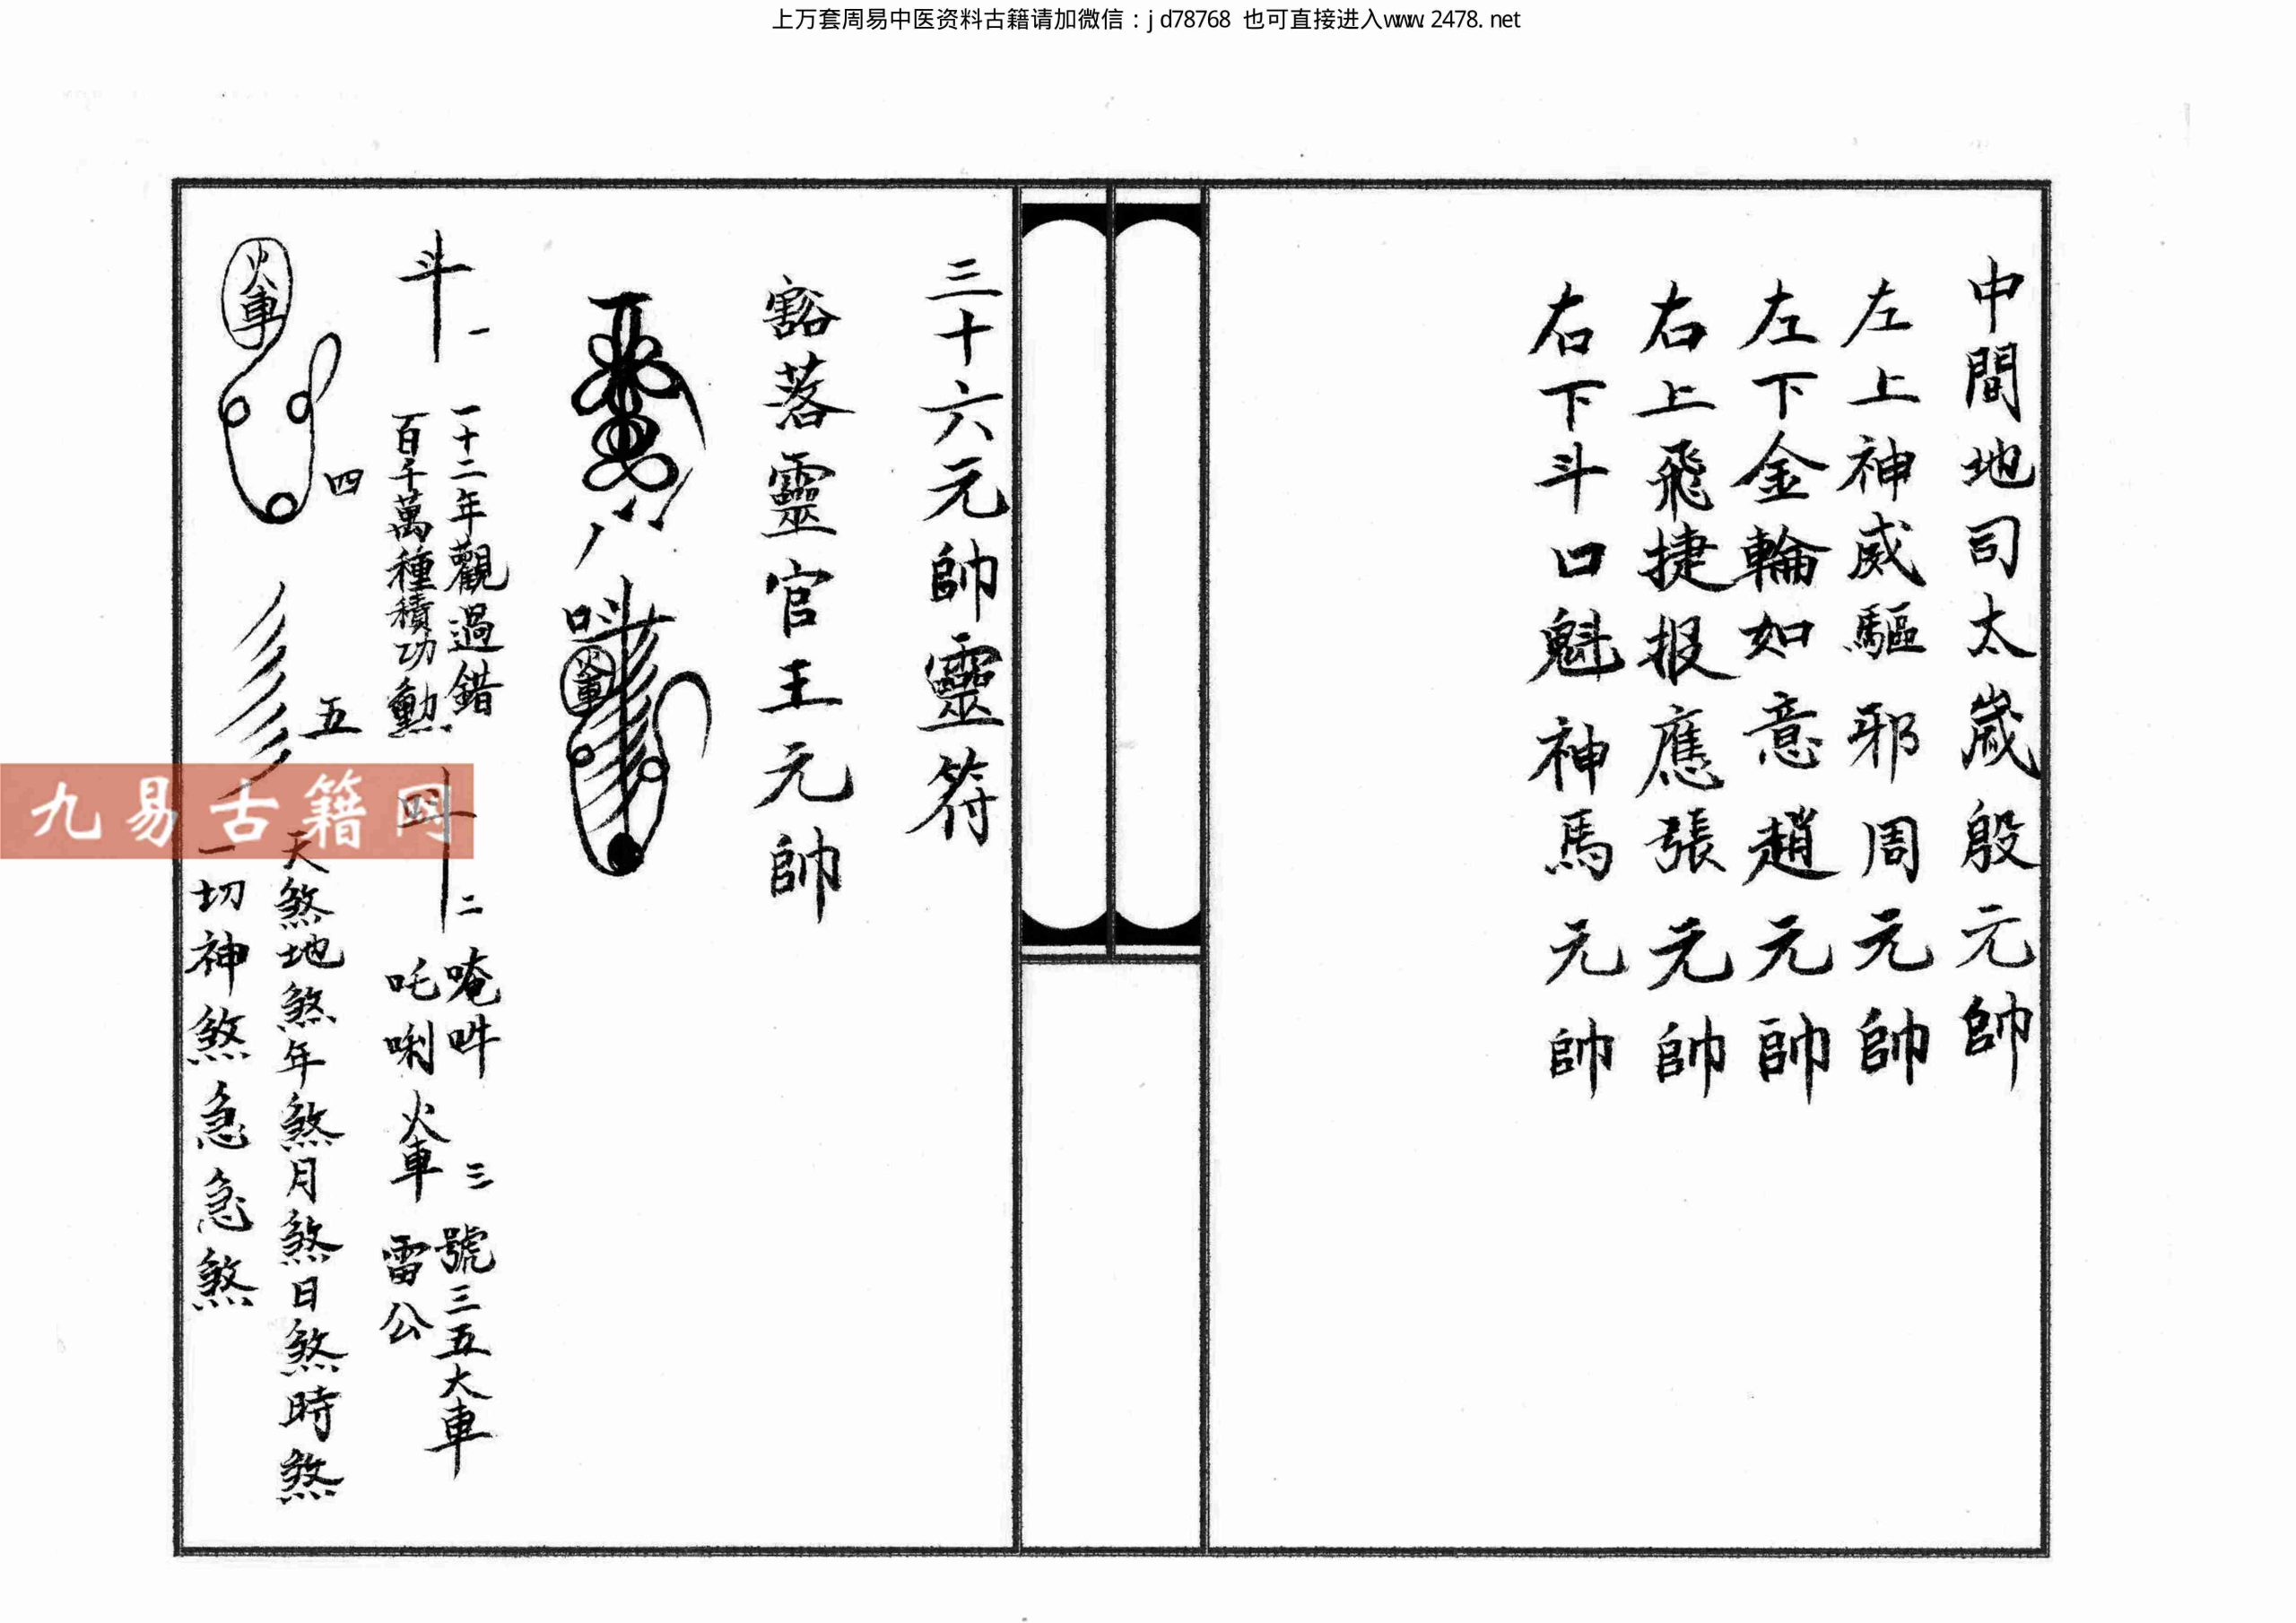 上万套周易中医资料古籍请加微信：jd78768 也可直接进入www.2478.net
中間地司太歲殷元帥
左上神威驅邪周元帥
左下金輪如意趙元帥
右上飛捷报應張元帥
右下斗口魁神馬元帥
三十六元帥靈符
豁落靈官王元帥
吽
火車
斗 一
一十二年觀過錯
百千萬種積功勳
吽 二
唵吽
吒唎
火車 三
號三五大車
雷公
火車
四
五
天煞地煞年煞月煞日煞時煞
一切神煞急急煞
九易古籍网